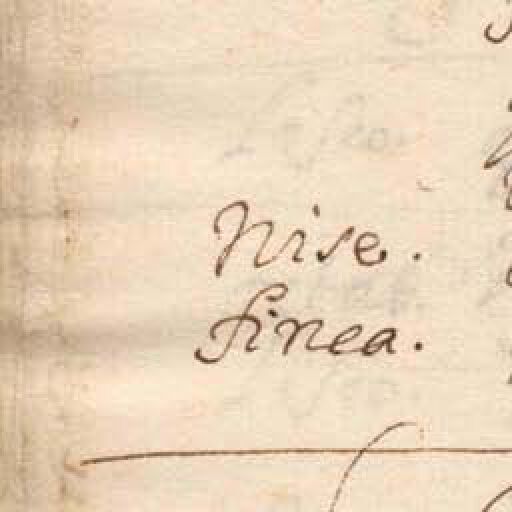 Nise.
finea.